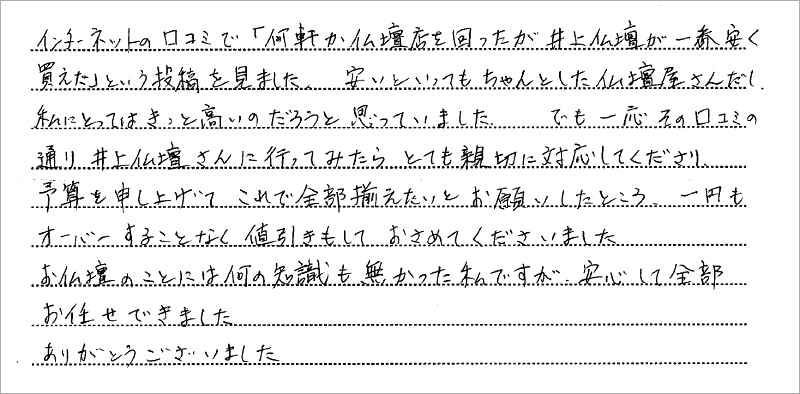 インターネットの口コミで「何軒か仏壇店を回ったが井上仏壇が一番安く
買えた」という投稿を見ました。 安いといってもちゃんとした仏壇屋さんだし、
私にとってはきっと高いのだろうと思っていました。 でも一応その口コミの
通り井上仏壇さんに行ってみたらとても親切に対応してくださり、
予算を申し上げてこれで全部揃えたいとお願いしたところ、一円も
オーバーすることなく値引きもしておさめてくださいました
お仏壇のことには何の知識も無かった私ですが、安心して全部
お任せできました
ありがとうございました